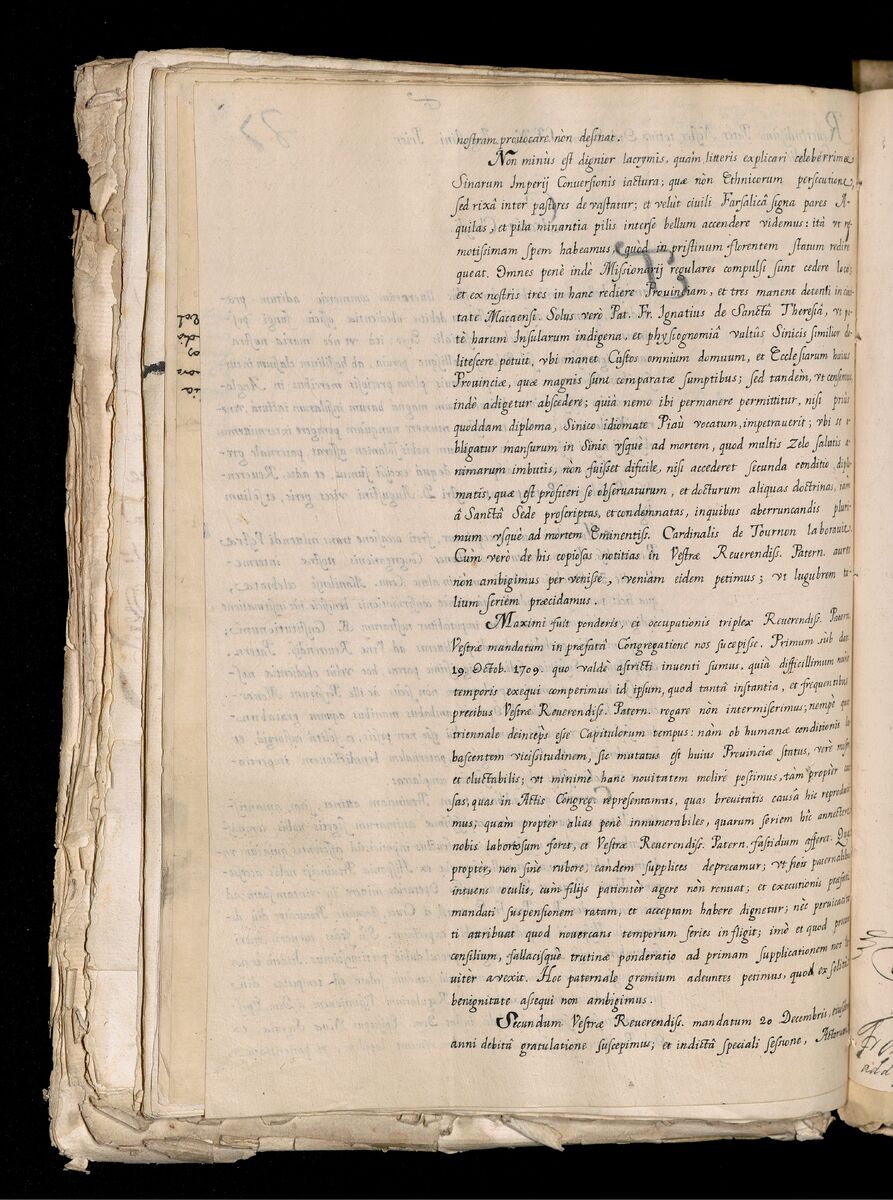 nostram provocare nòn desinat.
Non minùs est dignior lacrymis, quàm litteris explicari celeberrimæ
Sinarum Imperij Conversionis iactura; quæ nòn Ethnicorum persecutione,
sed rixâ inter pastores devastatur; et velùt civili Farsalicâ signa pares A-
quilas, et pila minantia pilis interse bellum accendere videmus: ità vt re-
motissimam spem habeamus, quòd in pristinum florentem statum redire
queat. Omnes penè indè Missionarij regulares compulsi sunt cedere loco;
et ex nostris tres in hanc rediere Provinciam, et tres manent detenti in civi-
tate Macaensi. Solus verò Pat. Fr. Ignatius de Sanctâ Theresiâ, vt po-
tè harum Insularum indigena, et physiognomiâ vultûs Sinicis similior de-
litescere potuit, vbi manet Custos omnium domuum, et Ecclesiarum huius
Provinciæ, quæ magnis sunt comparatæ sumptibus; sed tandèm, vt
indè adigetur abscedere; quià nemo ibi permanere permittitur, nisi priùs
quoddam diploma, Sinico idiomate Piaù vocatum, impetraverit; vbi se o-
bligatur mansurum in Sinis vsquè ad mortem, quod multis Zelo salutis a-
nimarum imbutis, nòn fuisset dificile, nisi accederet secunda conditio diplo-
matis, quæ est profiteri se observaturum, et docturum aliquas doctrinas, iam
â Sanctâ Sede proscriptas, et condemnatas, inquibus aberruncandis pluri-
mum vsquè ad mortem Eminentiss. Cardinalis de Tournon laboravit.
Cùm verò de his copiosas notitias in Vestræ Reverendiss. Patern. aures
nòn ambigimus pervenisse, veniam eidem petimus; vt lugubrem ta-
lium seriem præcidamus.
Maximi fuit ponderis, et occupationis triplex Reverendiss. Patern.
Vestræ mandatum in præfatâ Congregatione nos sucepisse. Primum sùb dat.
19. Octob. 1709. quo valdè astricti inventi sumus, quià difficillimum
temporis exequi comperimus id ipsum, quod tantâ instantia, et frequentibus
precibus Vestræ Reverendiss. Patern. rogare nòn intermiserimus; nempè quòd
triennale deincèps esse Capitulorum tempus: nàm ob humanæ conditionis la-
bascentem vicissitudinem, sic mutatus est huius Provinciæ status, verè
et eluctabilis; vt minimè hanc novitatem moliri possimus, tàm proptèr cau-
sas, quas in Actis Congreg. representamus, quas brevitatis causâ hìc reprodu-
mus; quàm proptèr alias penè innumerabiles, quarum seriem hîc annectere
nobis labortosum foret, et Vestræ Reverendiss. Patern. fastidium afferet. Qua-
proptèr, non sinè rubore, eandem supplices deprecamur; vt paternalibus
intuens oculis, cùm filijs patientèr agere non renuat; et executionis præfati
mandati suspensionem ratam, et acceptam habere dignetur; nèc pervicaciæ
ti attribuat quod novercans temporum series infligit; imò et quod
consilium, fallacisquè trutinæ ponderatio ad primam supplicationem nos
uitèr avexit. Hoc paternale gremium adeuntes petimus, quod ex solitâ
benignitate assequi non ambigimus.
Secundum Vestræ Reverendiss. mandatum 20 Decembris,
anni debitâ gratulatione suscepimus; et indictâ speciali sessione, Actorum